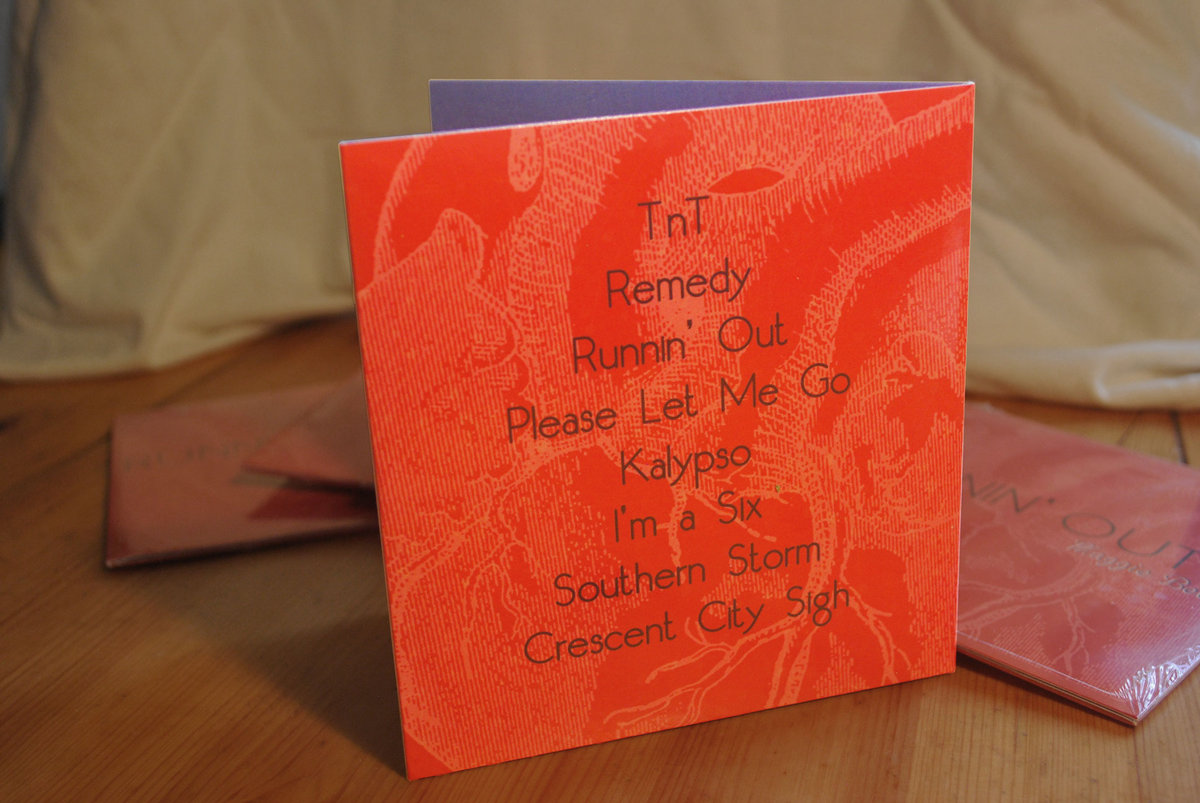 TnT
Remedy
Runnin' Out
Please Let Me Go
Kalypso
I'm a Six
Southern Storm
Crescent City Sigh
NIN' OUT